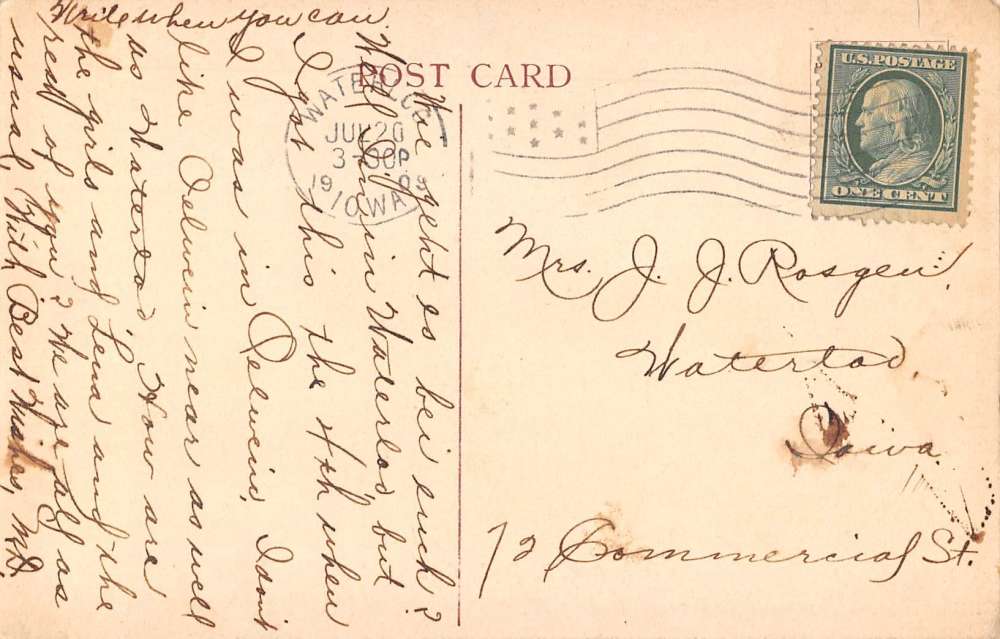 Write when you can.
POST CARD
Wae geght es bei euch?
Well I am in Waterloo, but
I got this the 4th when
I was in Oelwein, I don't
like Oelwein near as well
as Waterloo. How are
the girls and Lena and the
rest of you? We are all as
usual, With Best Wishes,
WATERLOO
JUL 20
3-00P
19 09
IOWA
U.S. POSTAGE
ONE CENT
Mrs. J. J. Rosgen.
Waterloo,
Iowa.
72 Commercial St.